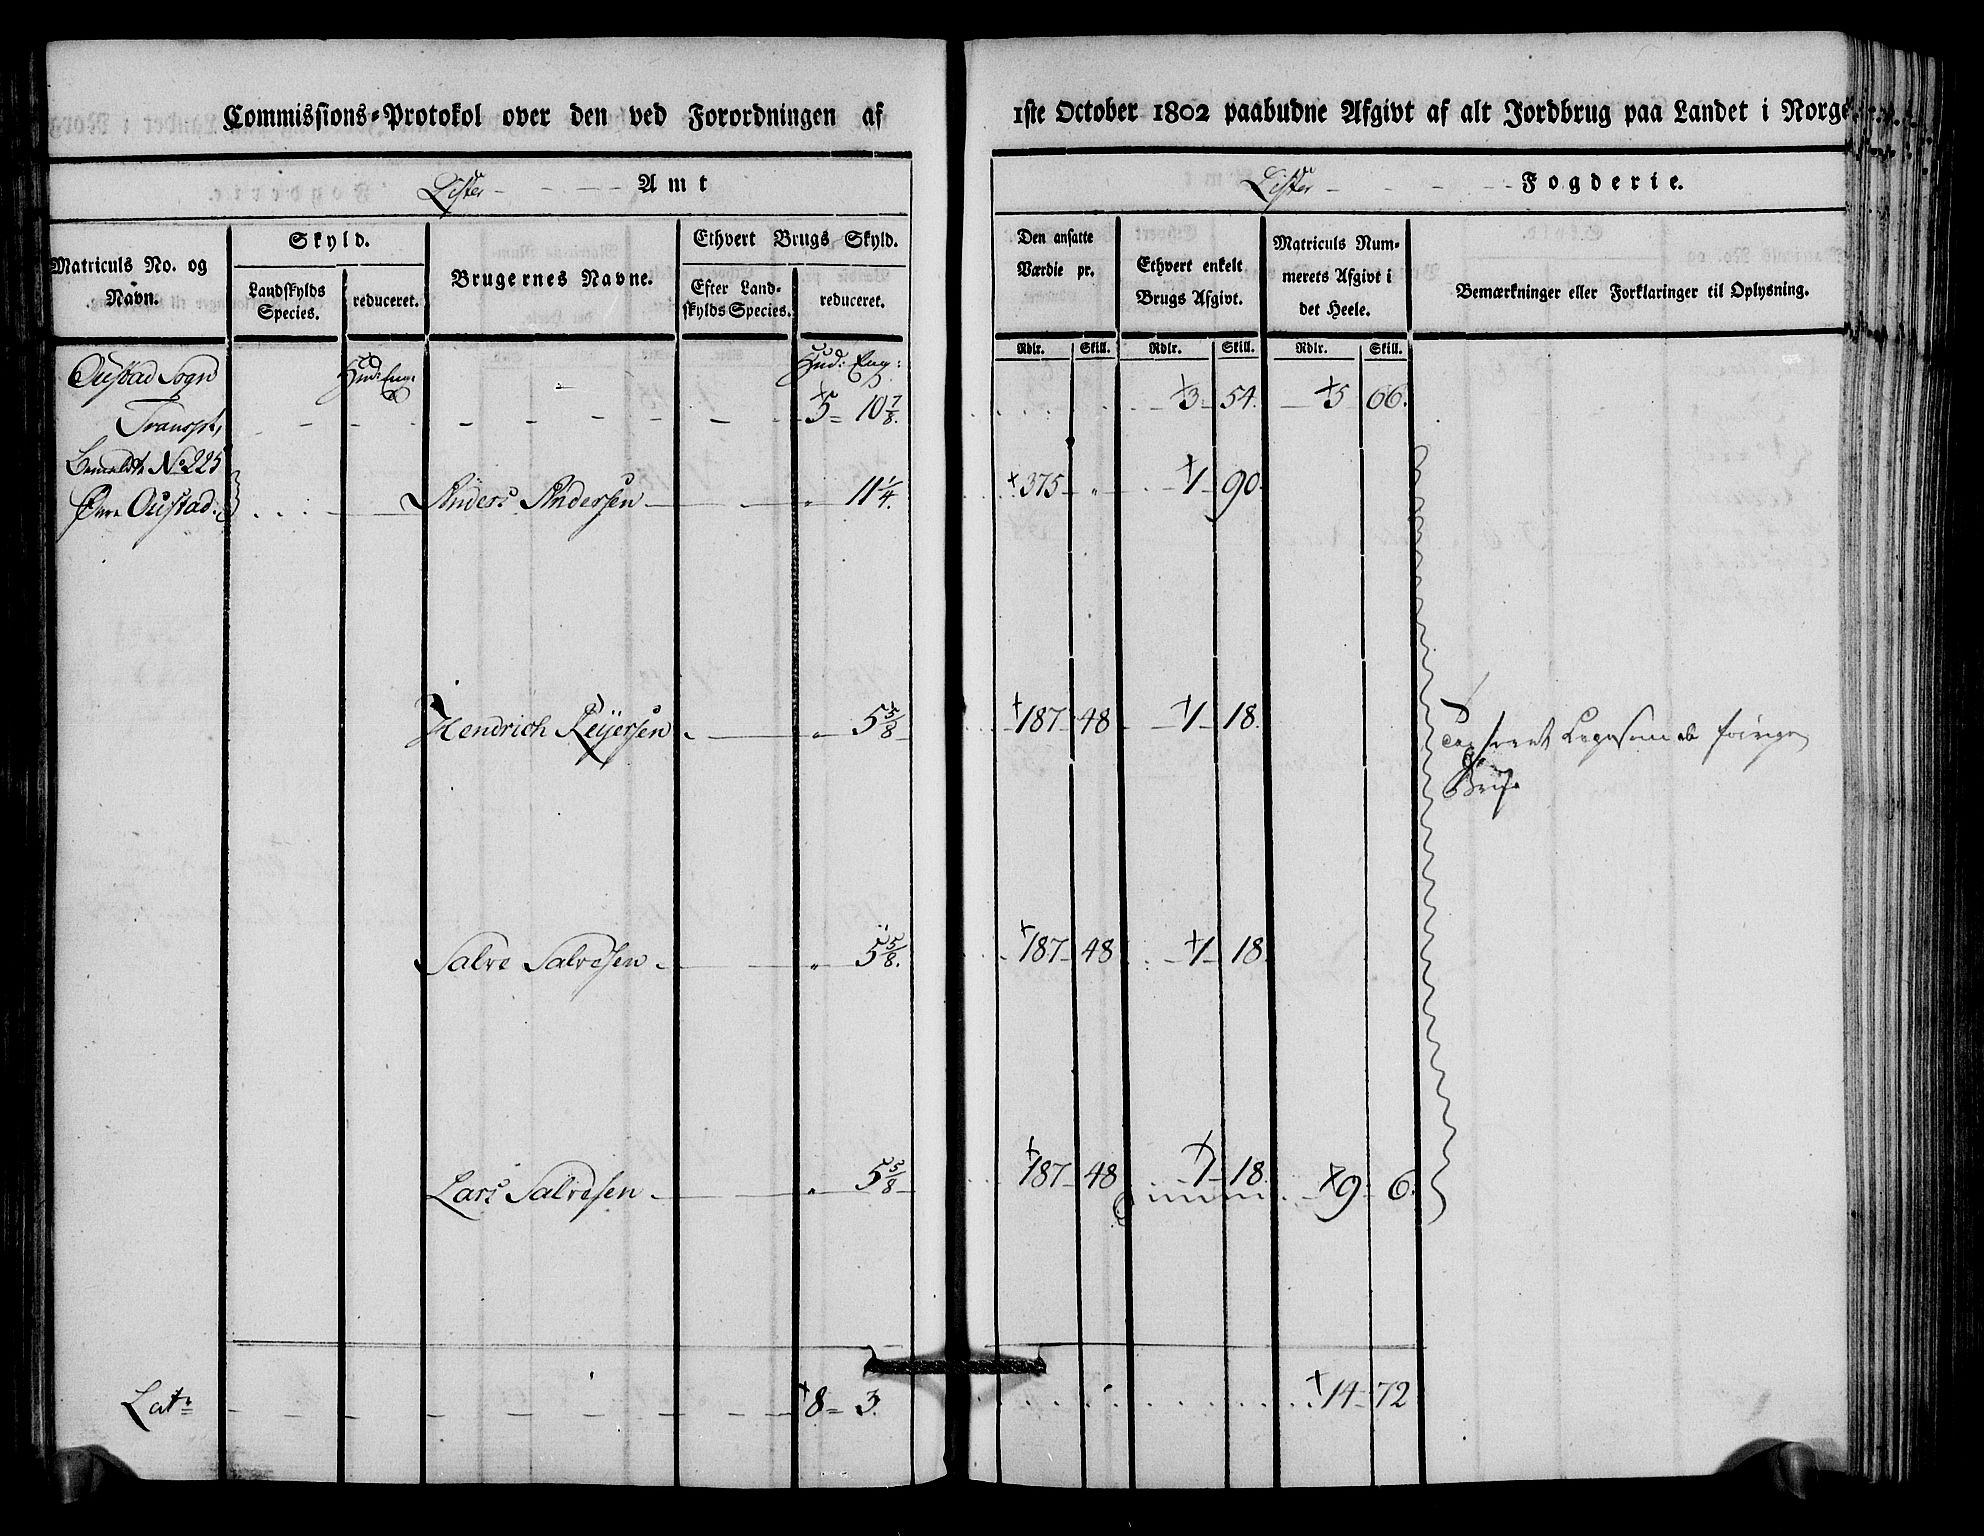 Commissions-Protokol over den ved Forordningen af 1ste October 1802 paabudne Afgivt af alt Jordbrug paa Landet i Norge.
Lister Amt
Lister Fogderie.
Matriculs No. og Navn.
Skyld.
Landskylds Species.
reduceret.
Brugernes Navne.
Ethvert Brugs Skyld.
Efter Landskylds Species.
reduceret.
Den ansatte Værdie pr.
Ethvert enkelt Brugs Afgivt.
Matriculs Nummerets Afgivt i det Heele.
Bemærkninger eller Forklaringer til Oplysning.
Rdlr. Skill. Rdlr. Skill. Rdlr. Skill.
Oustad Sogn Hud: Eng: Hud: Eng:
Transpt, 5 10 7/8. 3 54. 5 66.
No 225
Øvre Oustad: Anders Andersen " 11 1/4. 375 " 1 90.
Hendrich Reÿersen " 5 5/8 187 48 1 18.
Brug.
Salve Salvesen " 5 5/8. 187 48 1 18.
Lars Salvesen " 5 5/8 187 48 1 18. 9 6.
Lats 8 3. 14 72